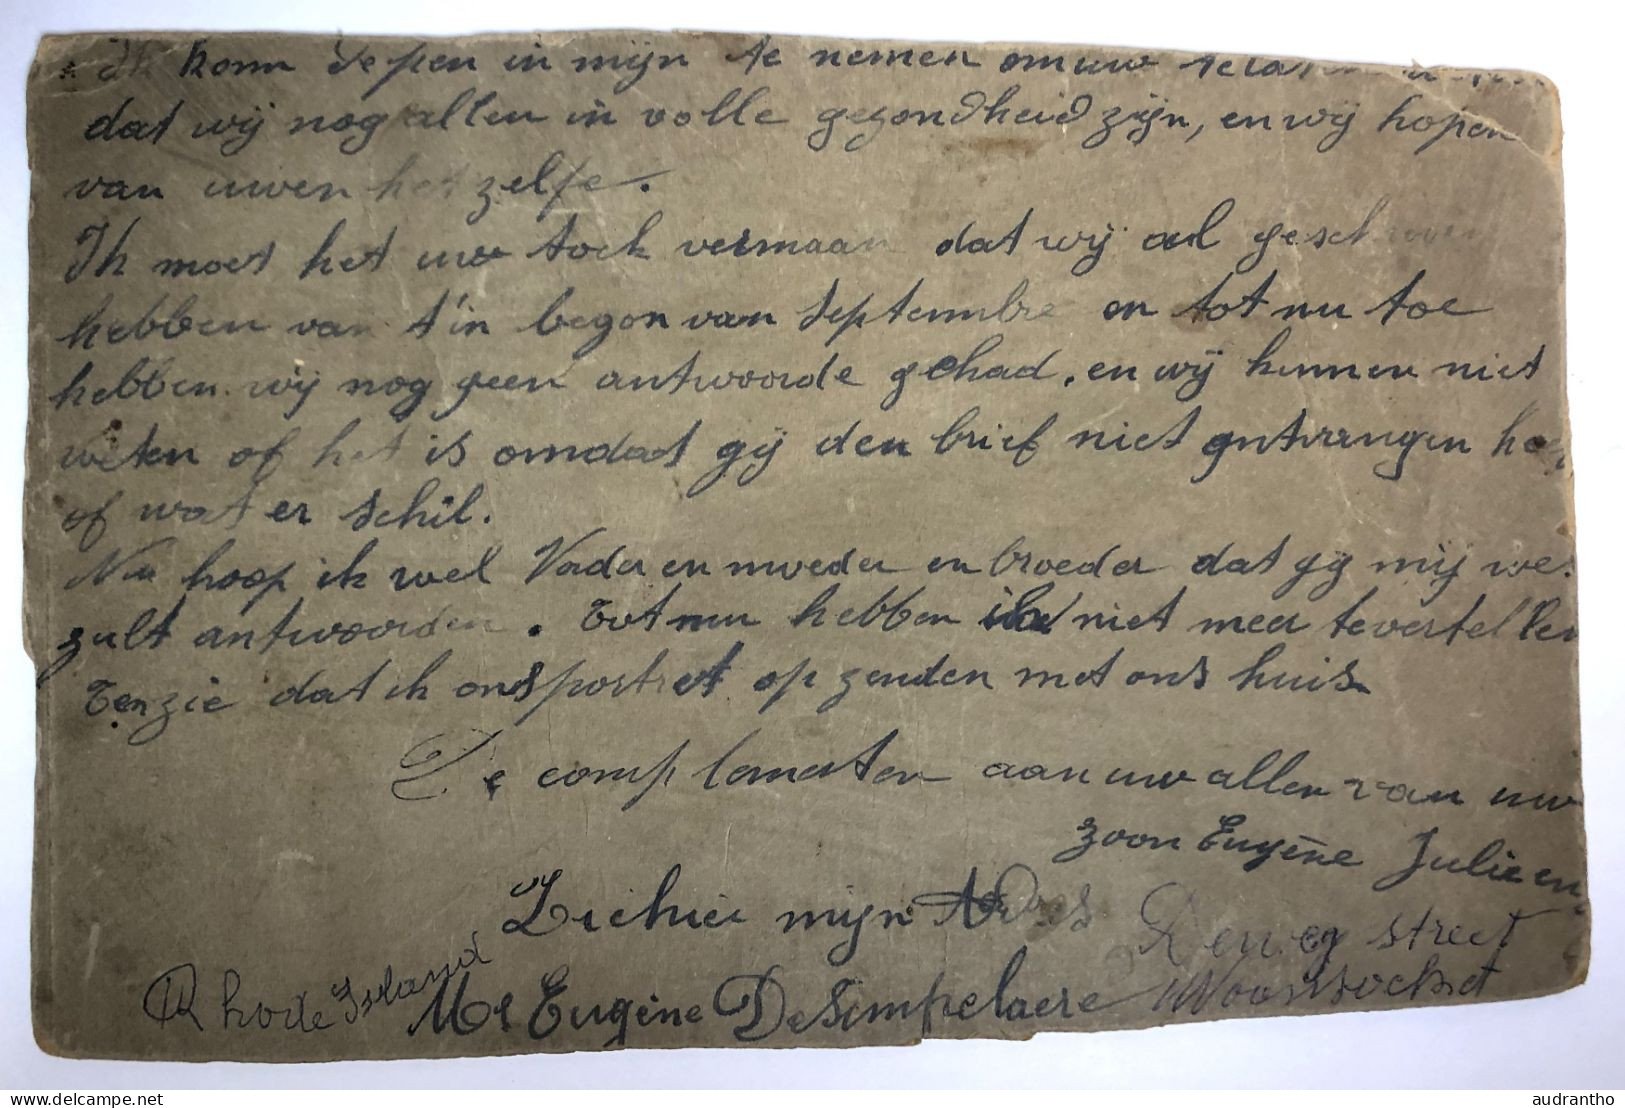 Ik kom de pen in mijn te nemen om uw
dat wij nog allen in volle gezondheid zijn, en wij hopen
van uwen het zelfe.
Ik moet het uw toch vermaan dat wij al geschreven
hebben van t'in begon van septembre en tot nu toe
hebben wij nog geen antwoorde gehad. en wij kunnen niet
weten of het is omdat gij den brief niet ontvangen
of wat er schil.
Nu hoop ik wel Vader en moeder en broeder dat gij mij
zult antwoorden. Tot nu hebben niet meer te vertellen
Tenzie dat ik ons portret op zenden met ons huis.
De complementen aan uw allen van uw
zoon Eugène Julie en
Ziehier mijn Adres
street
Rhode Island Mr Eugène DeSimpelaere Woonsocket
audrantho
delcampe.net